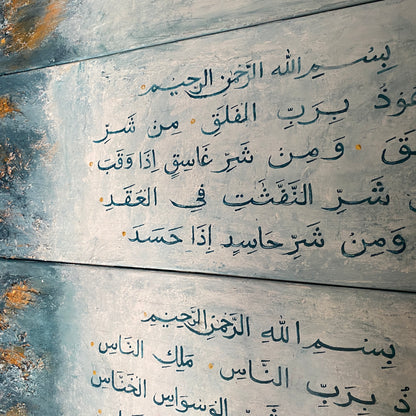 بِسْمِ اللهِ الرَّحْمٰنِ الرَّحِيْمِ
عُوْذُ بِرَبِّ الْفَلَقِ مِن شَرِّ
لَقَ وَمِن شَرِّ غَاسِقٍ إِذَا وَقَبَ
شَرِّ النَّفّٰثٰتِ فِي الْعُقَدِ
وَمِنْ شَرِّ حَاسِدٍ إِذَا حَسَدَ
بِسْمِ اللهِ الرَّحْمٰنِ الرَّحِيْمِ
ذُ بِرَبِّ النَّاسِ مَلِكِ النَّاسِ
شَرِّ الْوَسْوَاسِ الْخَنَّاسِ